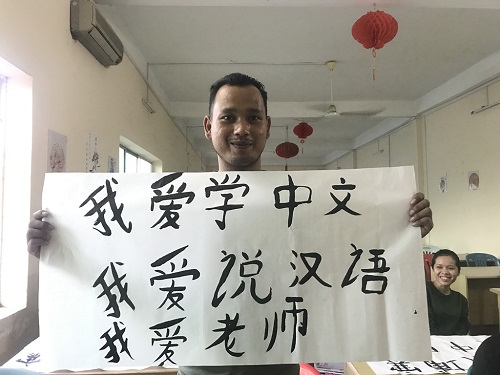 我爱学中文
我爱说汉语
我爱老师